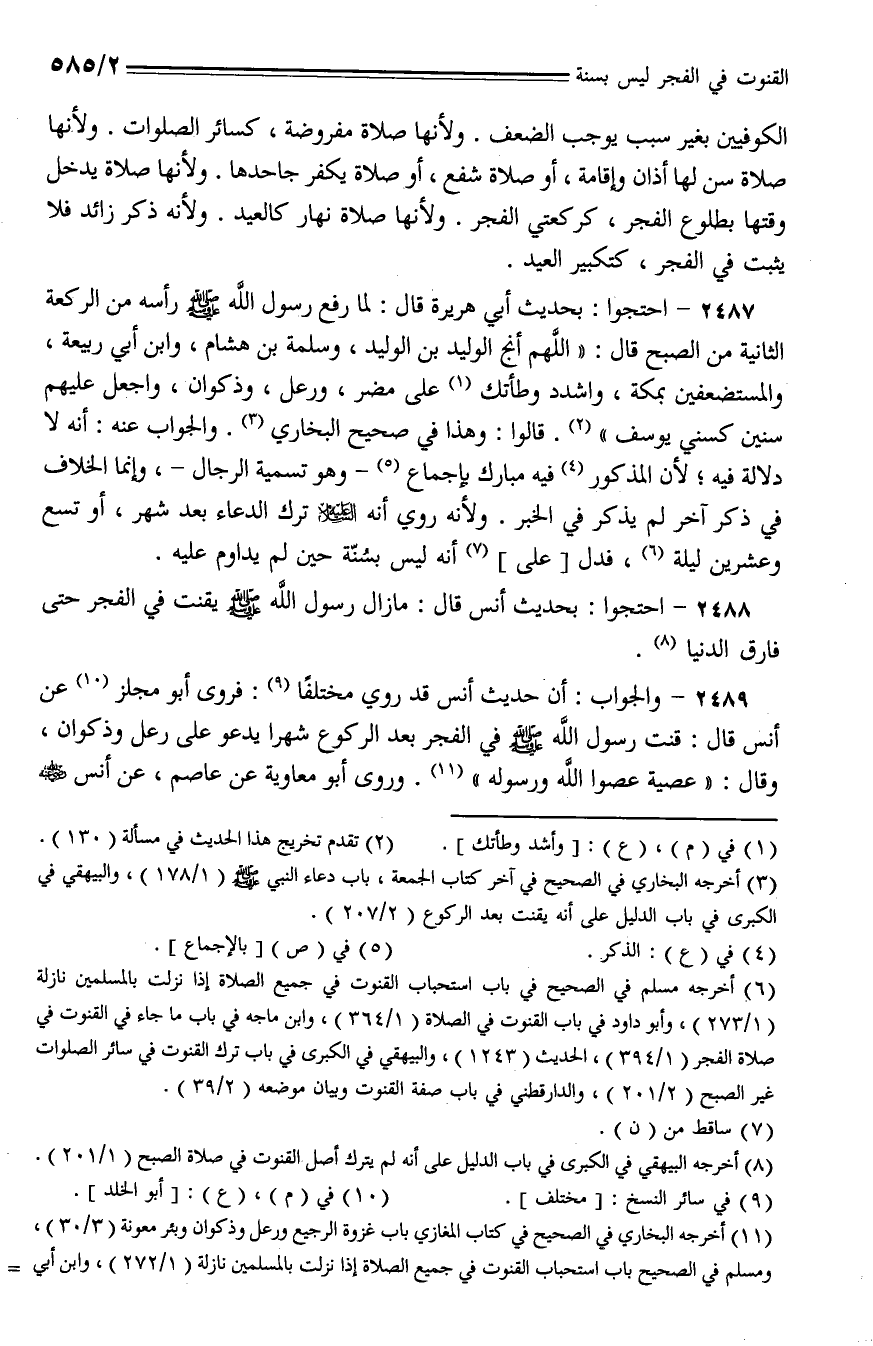 القنوت في الفجر ليس بسنة ٥٨٥/٢
الكوفيين بغير سبب يوجب الضعف . ولأنها صلاة مفروضة ، كسائر الصلوات . ولأنها
صلاة سن لها أذان وإقامة ، أو صلاة شفع ، أو صلاة يكفر جاحدها . ولأنها صلاة يدخل
وقتها بطلوع الفجر ، كركعتي الفجر . ولأنها صلاة نهار كالعيد . ولأنه ذكر زائد فلا
يثبت في الفجر ، كتكبير العيد .
٢٤٨٧ - احتجوا : بحديث أبي هريرة قال : لما رفع رسول اللَّه ﷺ رأسه من الركعة
الثانية من الصبح قال : « اللَّهم أنج الوليد بن الوليد ، وسلمة بن هشام ، وابن أبي ربيعة ،
والمستضعفين بمكة ، واشدد وطأتك (١) على مضر ، ورعل ، وذكوان ، واجعل عليهم
سنين كسني يوسف » (٢) . قالوا : وهذا في صحيح البخاري (٣) . والجواب عنه : أنه لا
دلالة فيه ؛ لأن المذكور (٤) فيه مبارك بإجماع (٥) - وهو تسمية الرجال - ، وإنما الخلاف
في ذكر آخر لم يذكر في الخبر . ولأنه روي أنه ﵇ ترك الدعاء بعد شهر ، أو تسع
وعشرين ليلة (٦) ، فدل [ على ] (٧) أنه ليس بسُنّة حين لم يداوم عليه .
٢٤٨٨ - احتجوا : بحديث أنس قال : مازال رسول اللَّه ﷺ يقنت في الفجر حتى
فارق الدنيا (٨) .
٢٤٨٩ - والجواب : أن حديث أنس قد روي مختلفًا (٩) : فروى أبو مجلز (١٠) عن
أنس قال : قنت رسول اللَّه ﷺ في الفجر بعد الركوع شهرا يدعو على رعل وذكوان ،
وقال : « عصية عصوا اللَّه ورسوله » (١١) . وروى أبو معاوية عن عاصم ، عن أنس ﵁
(١) في ( م ) ، ( ع ) : [ وأشد وطأتك ] . (٢) تقدم تخريج هذا الحديث في مسألة ( ١٣٠ ) .
(٣) أخرجه البخاري في الصحيح في آخر كتاب الجمعة ، باب دعاء النبي ﷺ ( ١٧٨/١ ) ، والبيهقي في
الكبرى في باب الدليل على أنه يقنت بعد الركوع ( ٢٠٧/٢ ) .
(٤) في ( ع ) : الذكر . (٥) في ( ص ) [ بالإجماع ] .
(٦) أخرجه مسلم في الصحيح في باب استحباب القنوت في جميع الصلاة إذا نزلت بالمسلمين نازلة
( ٢٧٣/١ ) ، وأبو داود في باب القنوت في الصلاة ( ٣٦٤/١ ) ، وابن ماجه في باب ما جاء في القنوت في
صلاة الفجر ( ٣٩٤/١ ) ، الحديث ( ١٢٤٣ ) ، والبيهقي في الكبرى في باب ترك القنوت في سائر الصلوات
غير الصبح ( ٢٠١/٢ ) ، والدارقطني في باب صفة القنوت وبيان موضعه ( ٣٩/٢ ) .
(٧) ساقط من ( ن ) .
(٨) أخرجه البيهقي في الكبرى في باب الدليل على أنه لم يترك أصل القنوت في صلاة الصبح ( ٢٠١/١ ) .
(٩) في سائر النسخ : [ مختلف ] . (١٠) في ( م ) ، ( ع ) : [ أبو الخلد ] .
(١١) أخرجه البخاري في الصحيح في كتاب المغازي باب غزوة الرجيع ورعل وذكوان وبئر معونة ( ٣٠/٣ ) ،
ومسلم في الصحيح باب استحباب القنوت في جميع الصلاة إذا نزلت بالمسلمين نازلة ( ٢٧٢/١ ) ، وابن أبي =